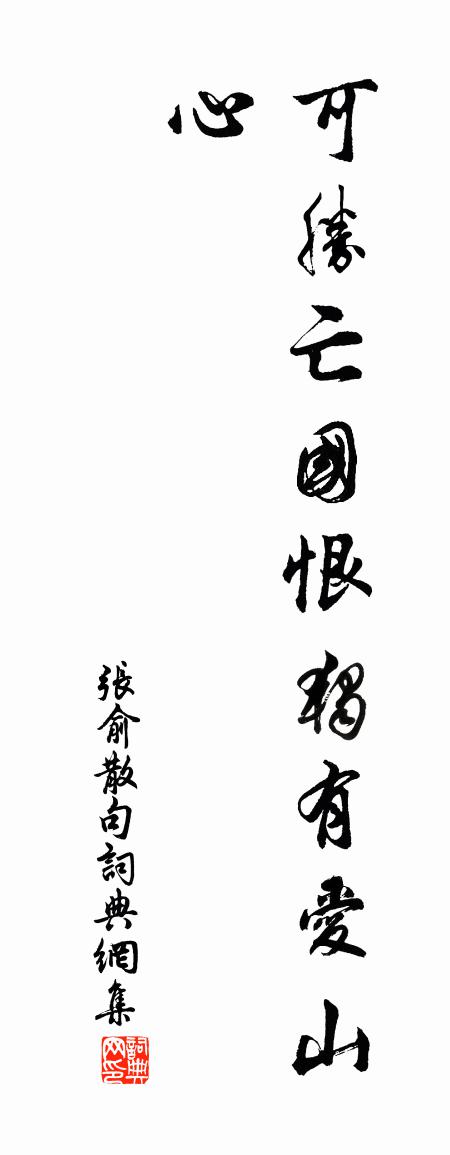 可勝亡國恨獨有愛山
心
張俞散句詞典網集
詞典网印